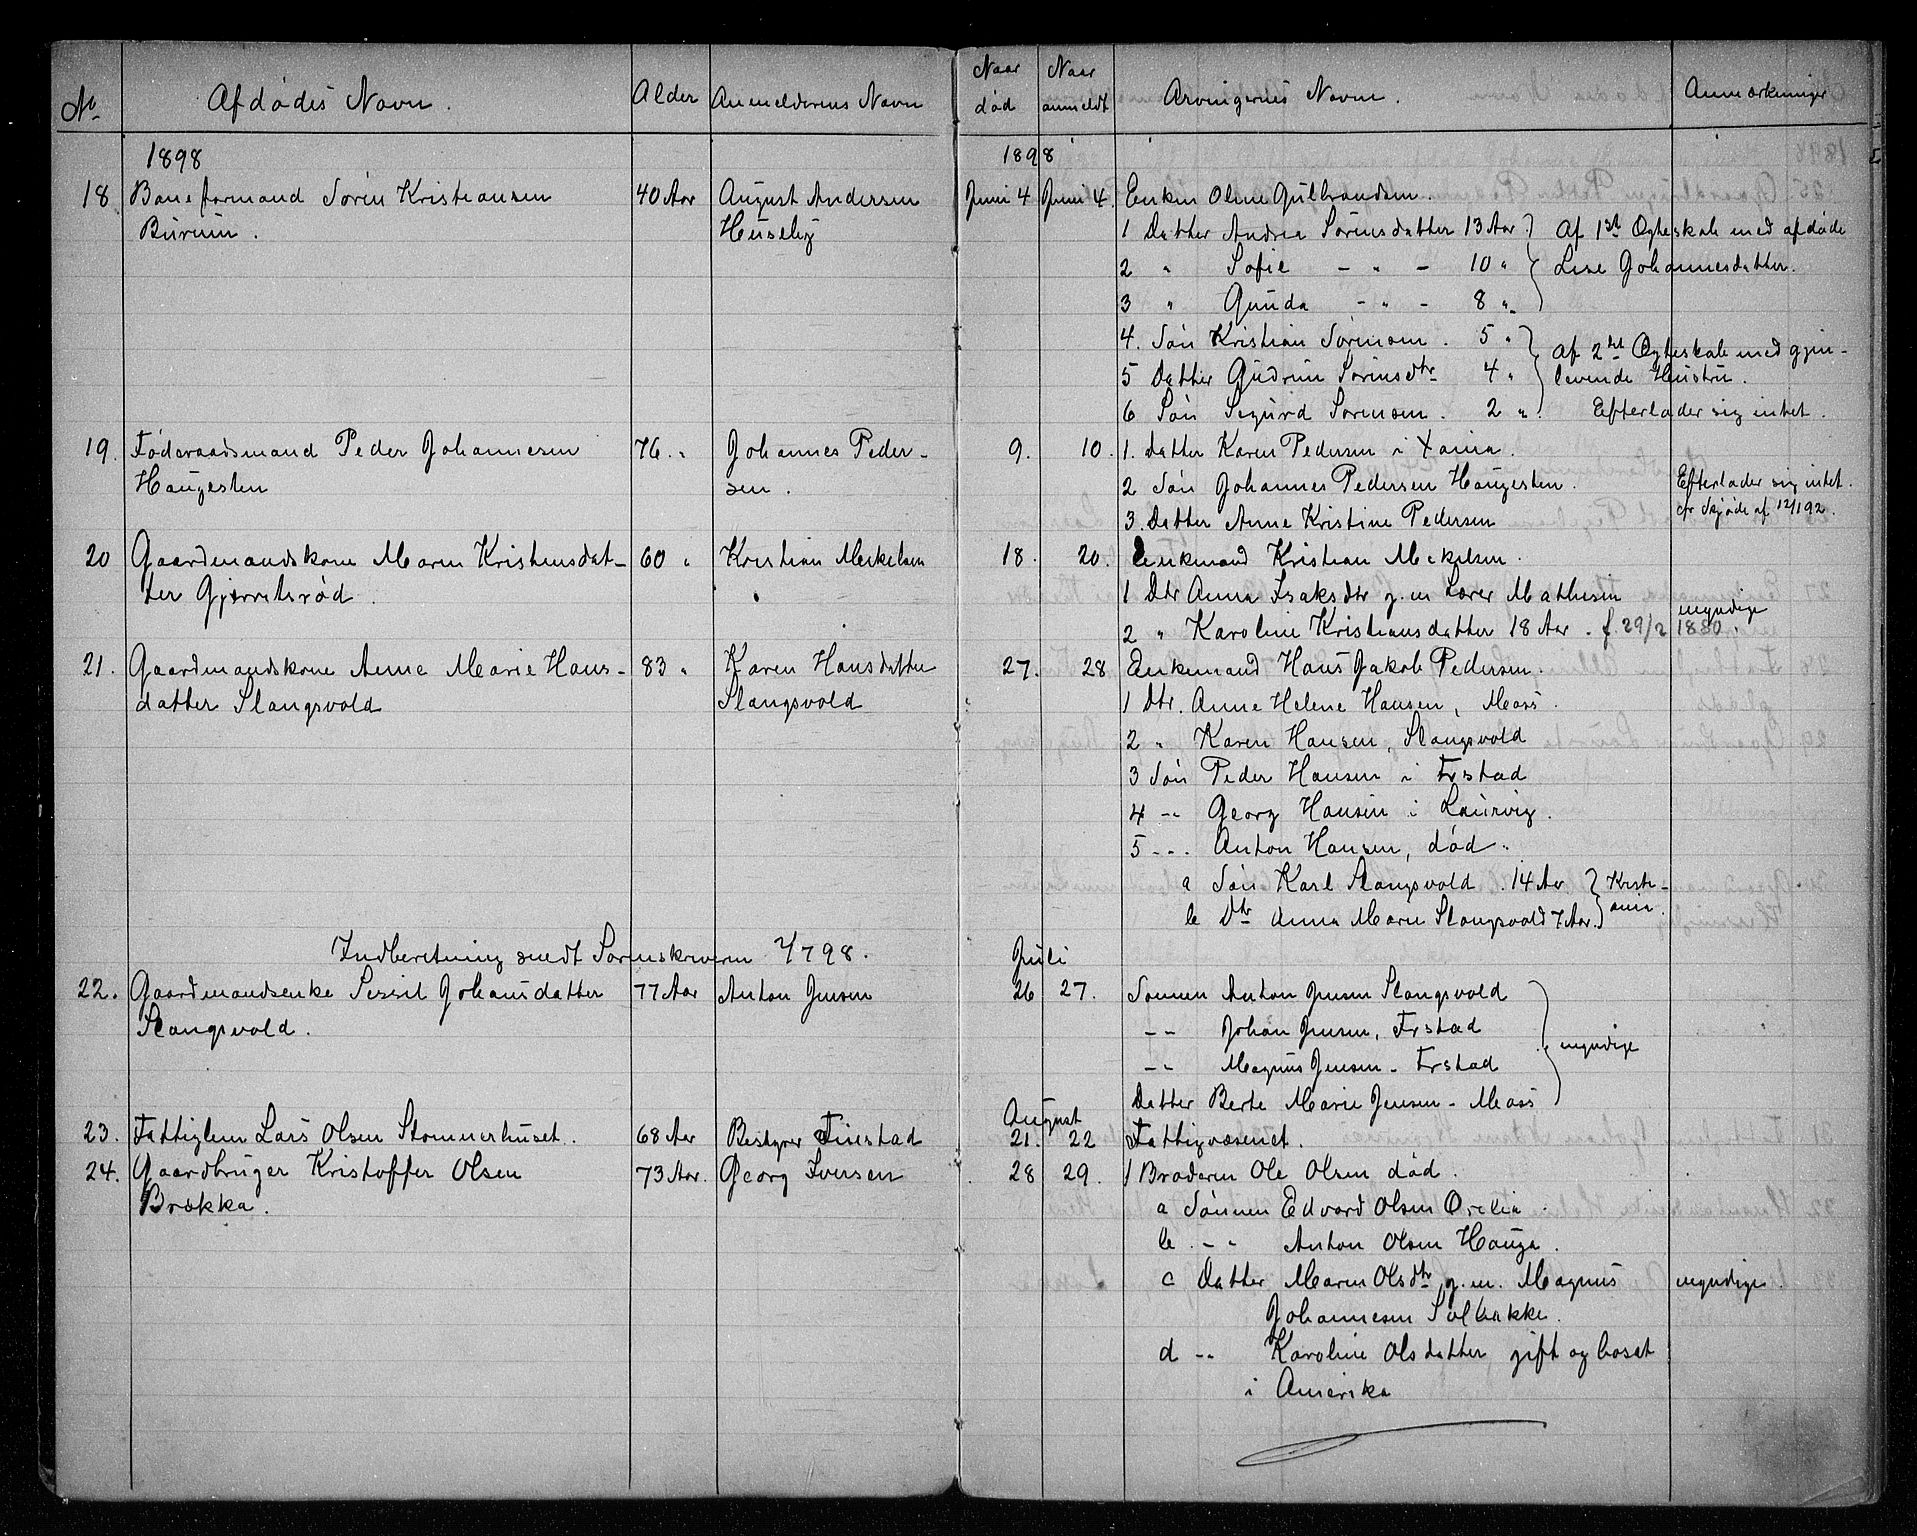 No Afdødes Navn. Alder Anmelderens Navn Naar død Naar anmeldt Arvingernes Navne. Anmærkninger
1898 1898
18 Baneformand Søren Kristiansen 40 Aar August Andersen Juni 4 Juni 4. Enken Oline Gulbrandsen.
Burum. Huseby 1 Datter Andrea Sørensdatter 13 Aar } Af 1st Ægteskab med afdøde
2 " Sofie - " - 10 " } Lise Johannesdatter.
3 " Gunda - " - 8 " }
4. Søn Kristian Sørensen. 5 " }
5 Datter Gudrun Sørensdtr 4 " } Af 2det Ægteskab med gjen-
levende Hustru.
6 Søn Sigurd Sørensen. 2 " } Efterlader sig intet.
19. Føderaadsmand Peder Johannesen 76 " Johannes Peder- 9. 10. 1. Datter Karen Pedersen i Xania.
Haugesten sen. 2 Søn Johannes Pedersen Haugesten. Efterlader sig intet.
3. Datter Anne Kristine Pedersen cfr Skjøde af 12/1 92.
20 Gaardmandskone Maren Kristensdat- 60 " Kristian Mekelsen 18. 20. Enkemand Kristian Mekelsen.
ter Gjerretsrød. 1 Dtr Anna Isaksdtr g.m Lærer Mathesen
myndige
2 " Karoline Kristiansdatter 18 Aar. f. 29/2 1880.
21. Gaardmandskone Anne Marie Hans- 83 " Karen Hansdatter 27. 28 Enkemand Hans Jakob Pedersen.
datter Slangsvold Slangsvold 1 Dtr. Anne Helene Hansen, Moss.
2 " Karen Hansen, Slangsvold
3 Søn Peder Hansen i Frstad
4 -"- Georg Hansen i Laurvig.
5 -"- Anton Hansen, død.
a Søn Karl Slangsvold. 14 Aar } Kristi-
b Dtr Anna Marie Slangsvold 7 Aar. } ania.
Indberetning sendt Sorenskriveren 4/7 98. Juli
22. Gaardmandsenke Sissil Johansdatter 77 Aar Anton Jensen 26 27. Sønnen Anton Jensen Slangsvold }
Slangsvold. -"- Johan Jensen, Frstad
-"- Magnus Jensen - Frstad } myndige
Datter Berte Marie Jensen - Moss }
August
23. Fattiglem Lars Olsen Stommerhuset. 68 Aar Bestyrer Finstad 21. 22 Fattigvæsenet.
24. Gaardbruger Kristoffer Olsen 73 Aar. Georg Iversen 28 29. 1 Broderen Ole Olsen død.
Brækka. a Sønnen Edvard Olsen Orelia.
b -"- Anton Olsen Hauge.
c Datter Maren Olsdtr, g.m. Magnus myndige.
Johannesen Solbakke.
d -"- Karoline Olsdatter gift og bosat
i Amerika